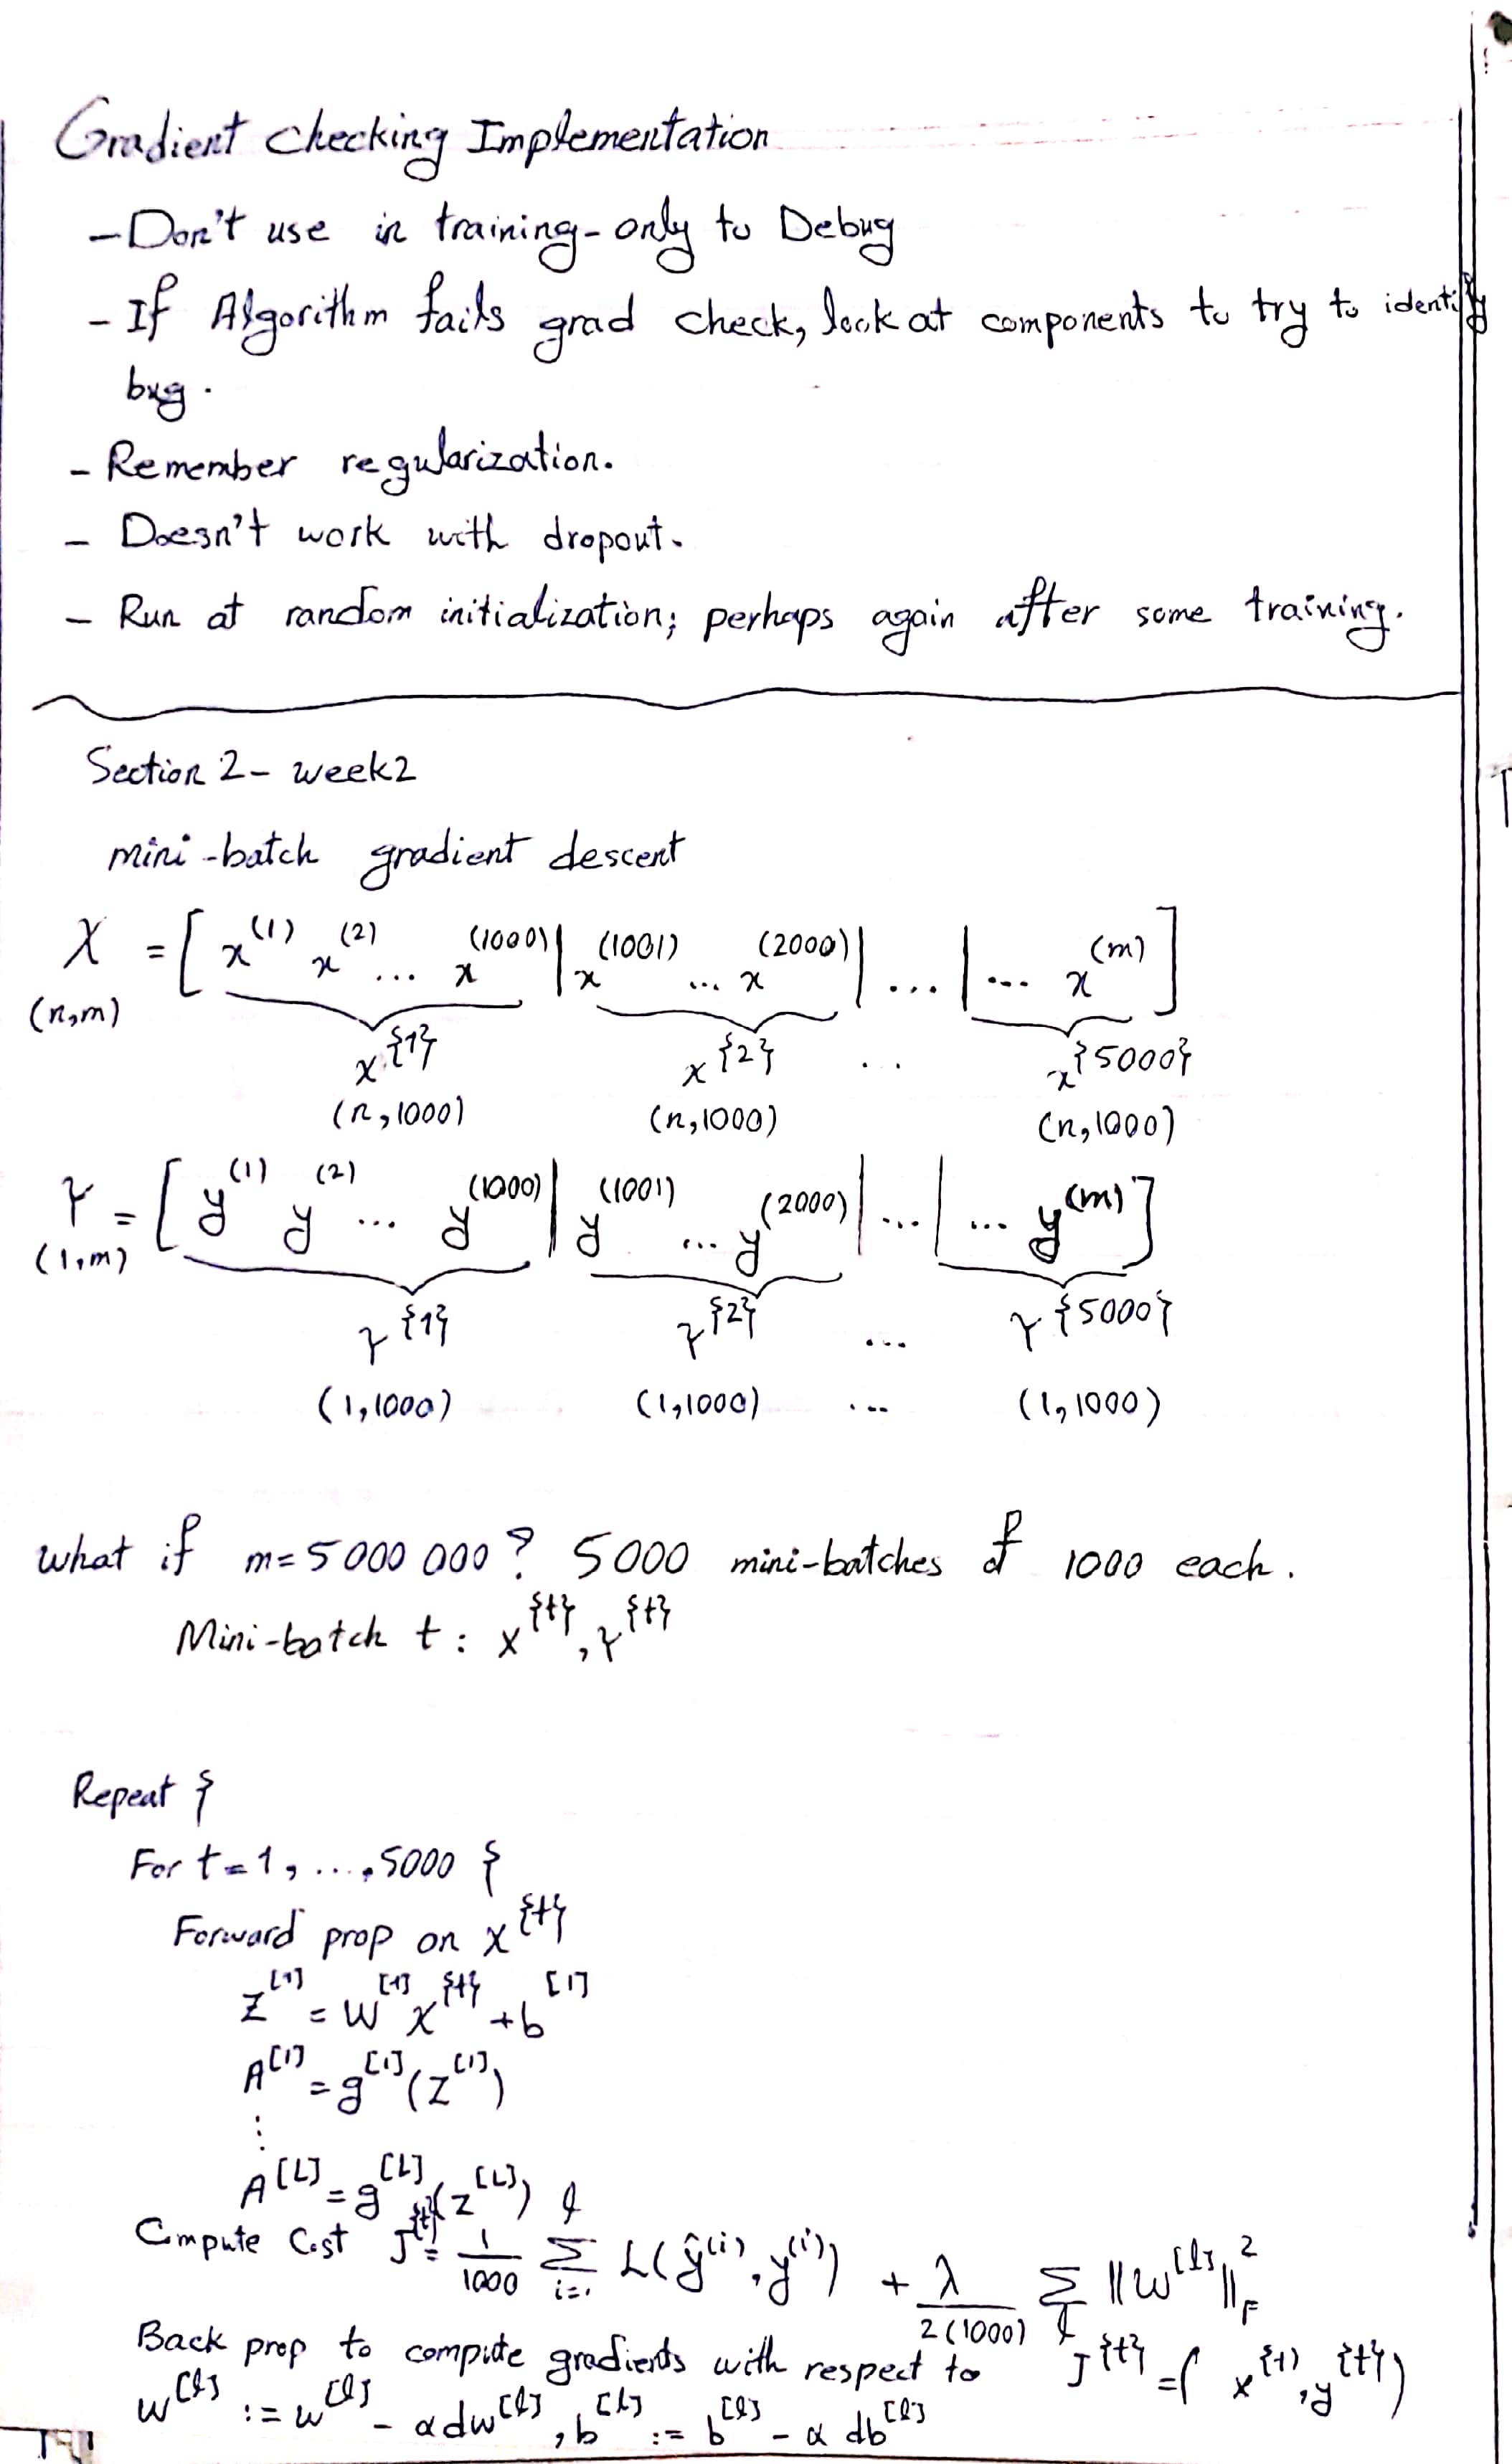 Gradient checking Implementation
- Don't use in training - only to Debug
- If Algorithm fails grad check, look at components to try to identify
bug.
- Remember regularization.
- Doesn't work with dropout.
- Run at random initialization; perhaps again after some training.
Section 2 - week2
mini-batch gradient descent
X = [ x^(1) x^(2) ... x^(1000) | x^(1001) ... x^(2000) | ... | ... x^(m) ]
(n,m)
x^{1} x^{2} ... x^{5000}
(n,1000) (n,1000) (n,1000)
Y = [ y^(1) y^(2) ... y^(1000) | y^(1001) ... y^(2000) | ... | ... y^(m) ]
(1,m)
Y^{1} Y^{2} ... Y^{5000}
(1,1000) (1,1000) ... (1,1000)
what if m=5000 000? 5000 mini-batches of 1000 each.
Mini-batch t: X^{t}, Y^{t}
Repeat {
For t=1, ..., 5000 {
Forward prop on X^{t}
Z^[1] = W^[1] X^{t} + b^[1]
A^[1] = g^[1](Z^[1])
⋮
A^[L] = g^[L](Z^[L])
Compute Cost J^{t} = 1/1000 Σ_{i=1}^{l} L(ŷ^(i), y^(i)) + λ/2(1000) Σ_l ||W^[l]||_F^2
Back prop to compute gradients with respect to J^{t} = ( x^{t}, y^{t})
W^[l] := W^[l] - α dw^[l], b^[l] := b^[l] - α db^[l]